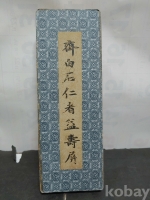 齊白石仁者益壽屏
kobay